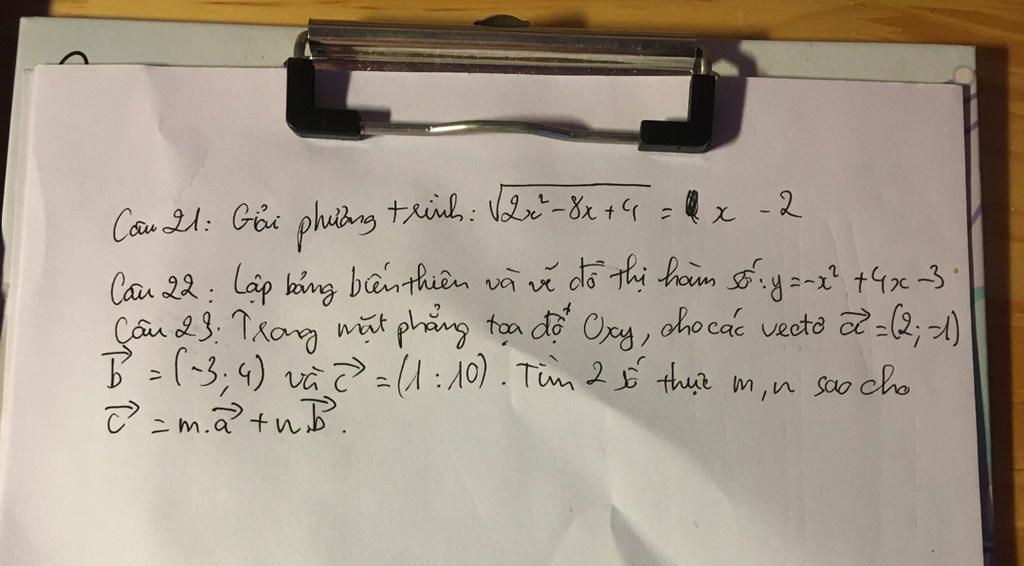 Câu 21: Giải phương trình: √2x² - 8x + 4 = x - 2
Câu 22: Lập bảng biến thiên và vẽ đồ thị hàm số: y = -x² + 4x - 3
Câu 23: Trong mặt phẳng tọa độ Oxy, cho các vectơ a⃗ = (2; -1)
b⃗ = (-3; 4) và c⃗ = (1 : 10). Tìm 2 số thực m, n sao cho
c⃗ = m.a⃗ + n.b⃗.